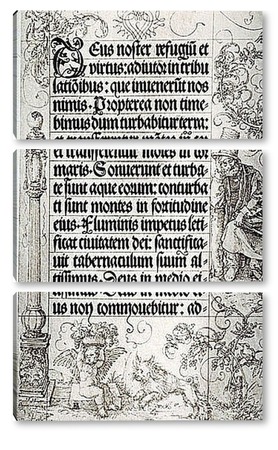 Deus noster refugiũ et
virtus: adiutor in tribu
latiõibus: que inuenerũt nos
nimis. Propterea non time
bimus dum turbabitur terra:
et transferentur mõtes in cor
maris. Sonuerunt et turba
te sunt aque eorum: conturba
ti sunt montes in fortitudine
eius. Fluminis impetus leti
ficat ciuitatem dei: sanctifica
uit tabernaculum suũ al
tissimus. Deus in medio ei
us non commouebitur: ad